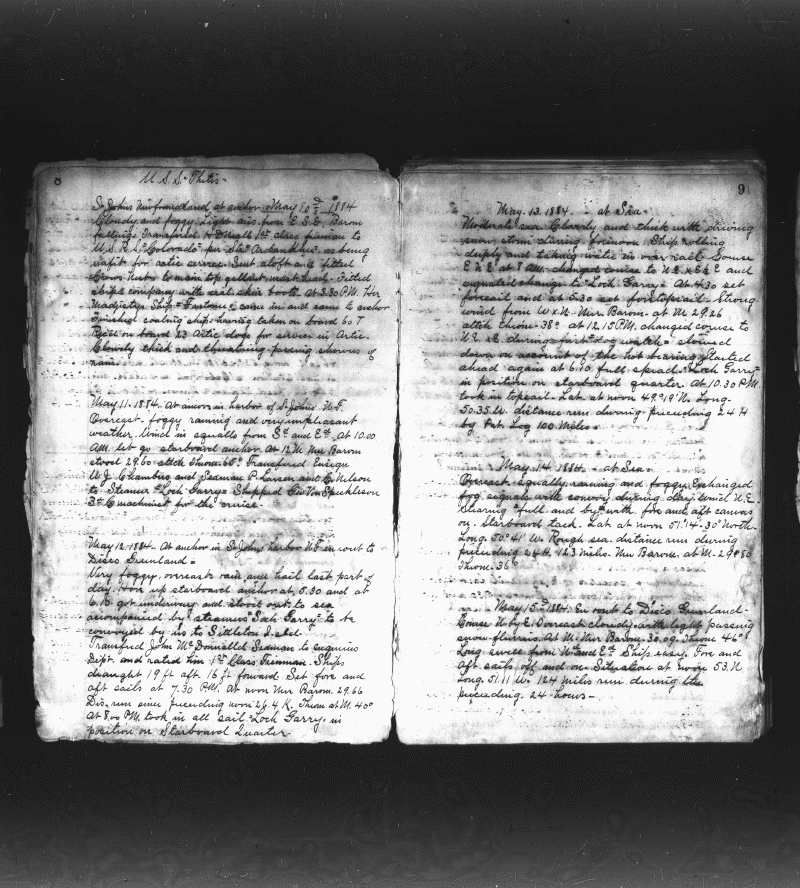 8
U.S.S. Thetis
St Johns Newfoundland at anchor May 10th 1884
Cloudy and foggy. Light airs from E.S.E. Baron
falling. Transferred H. 1st class fireman to
U.S.R.S. Colorado per Str. as being
unfit for artic service. Sent aloft and fitted
Crows Nest to main top gallant mast head. Fitted
ships company with seal skin boots. At 3.30 P.M. Her
Majestys Ship Fantome came in and came to anchor
Finished coaling ship having taken on board 60 T
Recd on board 23 Artic dogs for service in Artic.
Cloudy thick and threatning passing showers of
rain.
May 11. 1884. At anchor in harbor of St Johns N.F.
Overcast foggy raining and very unpleasant
weather. Wind in squalls from Sd and Ed. At 10.00
AM. let go starboard anchor. At 12 M. Mer Baron
stood 29.60 attch Throm 60° Transfered Ensign
W. J. Chambers and Seaman P. Larsen and C. Nelson
to Steamer Loch Garry. Shipped Geo Von
3d C machinist for the cruise.
May 12. 1884. At anchor in St Johns harbor N.F. en rout to
Disco Greenland
Very foggy, overcast, rain and hail last part of
day. Hove up starboard anchor at 5.30 and at
6.15 got underway and stood out to sea
accompanied by steamer Loch Garry to be
convoyed by us to Littleton Isld.
Transfred John McDonnelld Seaman to engineers
Dept. and rated him 1st Class Fireman. Ships
draught 19 ft aft 16 ft forward. Set fore and
aft sails at 7.30 P.M. At noon Mer Baron. 29.66
Dis. run since preceeding noon 26.4 K. Throm at M. 40°
At 8.00 P.M. took in all sail. Loch Garry in
position on Starboard Quarter
9
May. 13. 1884. at Sea.
Moderate sea. Cloudy and thick with driving
snow storm during forenoon. Ship rolling
deeply and taking water in over rail. Course
E N E at 8 AM. changed course to N E x E ½ E and
signaled change to Loch Garry. At 4.30 set
foresail and at 5.30 set foretopsail. Strong
wind from W x N. Mer Barom. at M 29.26
attch throm. 38° at 12.15 P.M. changed course to
N E x E during first dog watch slowed
down on account of the hot bearing. Started
ahead again at 6.10 full spead. Loch Garry
in position on starboard quarter. At 10.30 P.M.
took in topsail. Lat. at noon 49.°19' N. Long.
50.35 W. distance run during preceeding 24 H
by Pat. Log 100 Miles.
May 14. 1884. at Sea.
Overcast squally raining and foggy. Exchanged
fog signals with convoy during day. Wind N.E.
Stearing full and by with fore and aft canvas
on Starboard tack. Lat. at noon 51.°14'-30" North.
Long. 50° 41' W. Rough sea. distance run during
preceeding 24 H. 123 miles. Mer Barom. at M. 29.50
Throm. 36°
May 15th 1884. En rout to Disco Greenland.
Course N by E. Overcast cloudy with light passing
snow flurries. At M. Mer Baron. 30.09. Throm 46°
Long swell from Nd and Ed. Ship easy. Fore and
Aft sails off and on. Situation at noon 53. N
Long. 51.11 W. 124 miles run during the
preceeding 24 hours